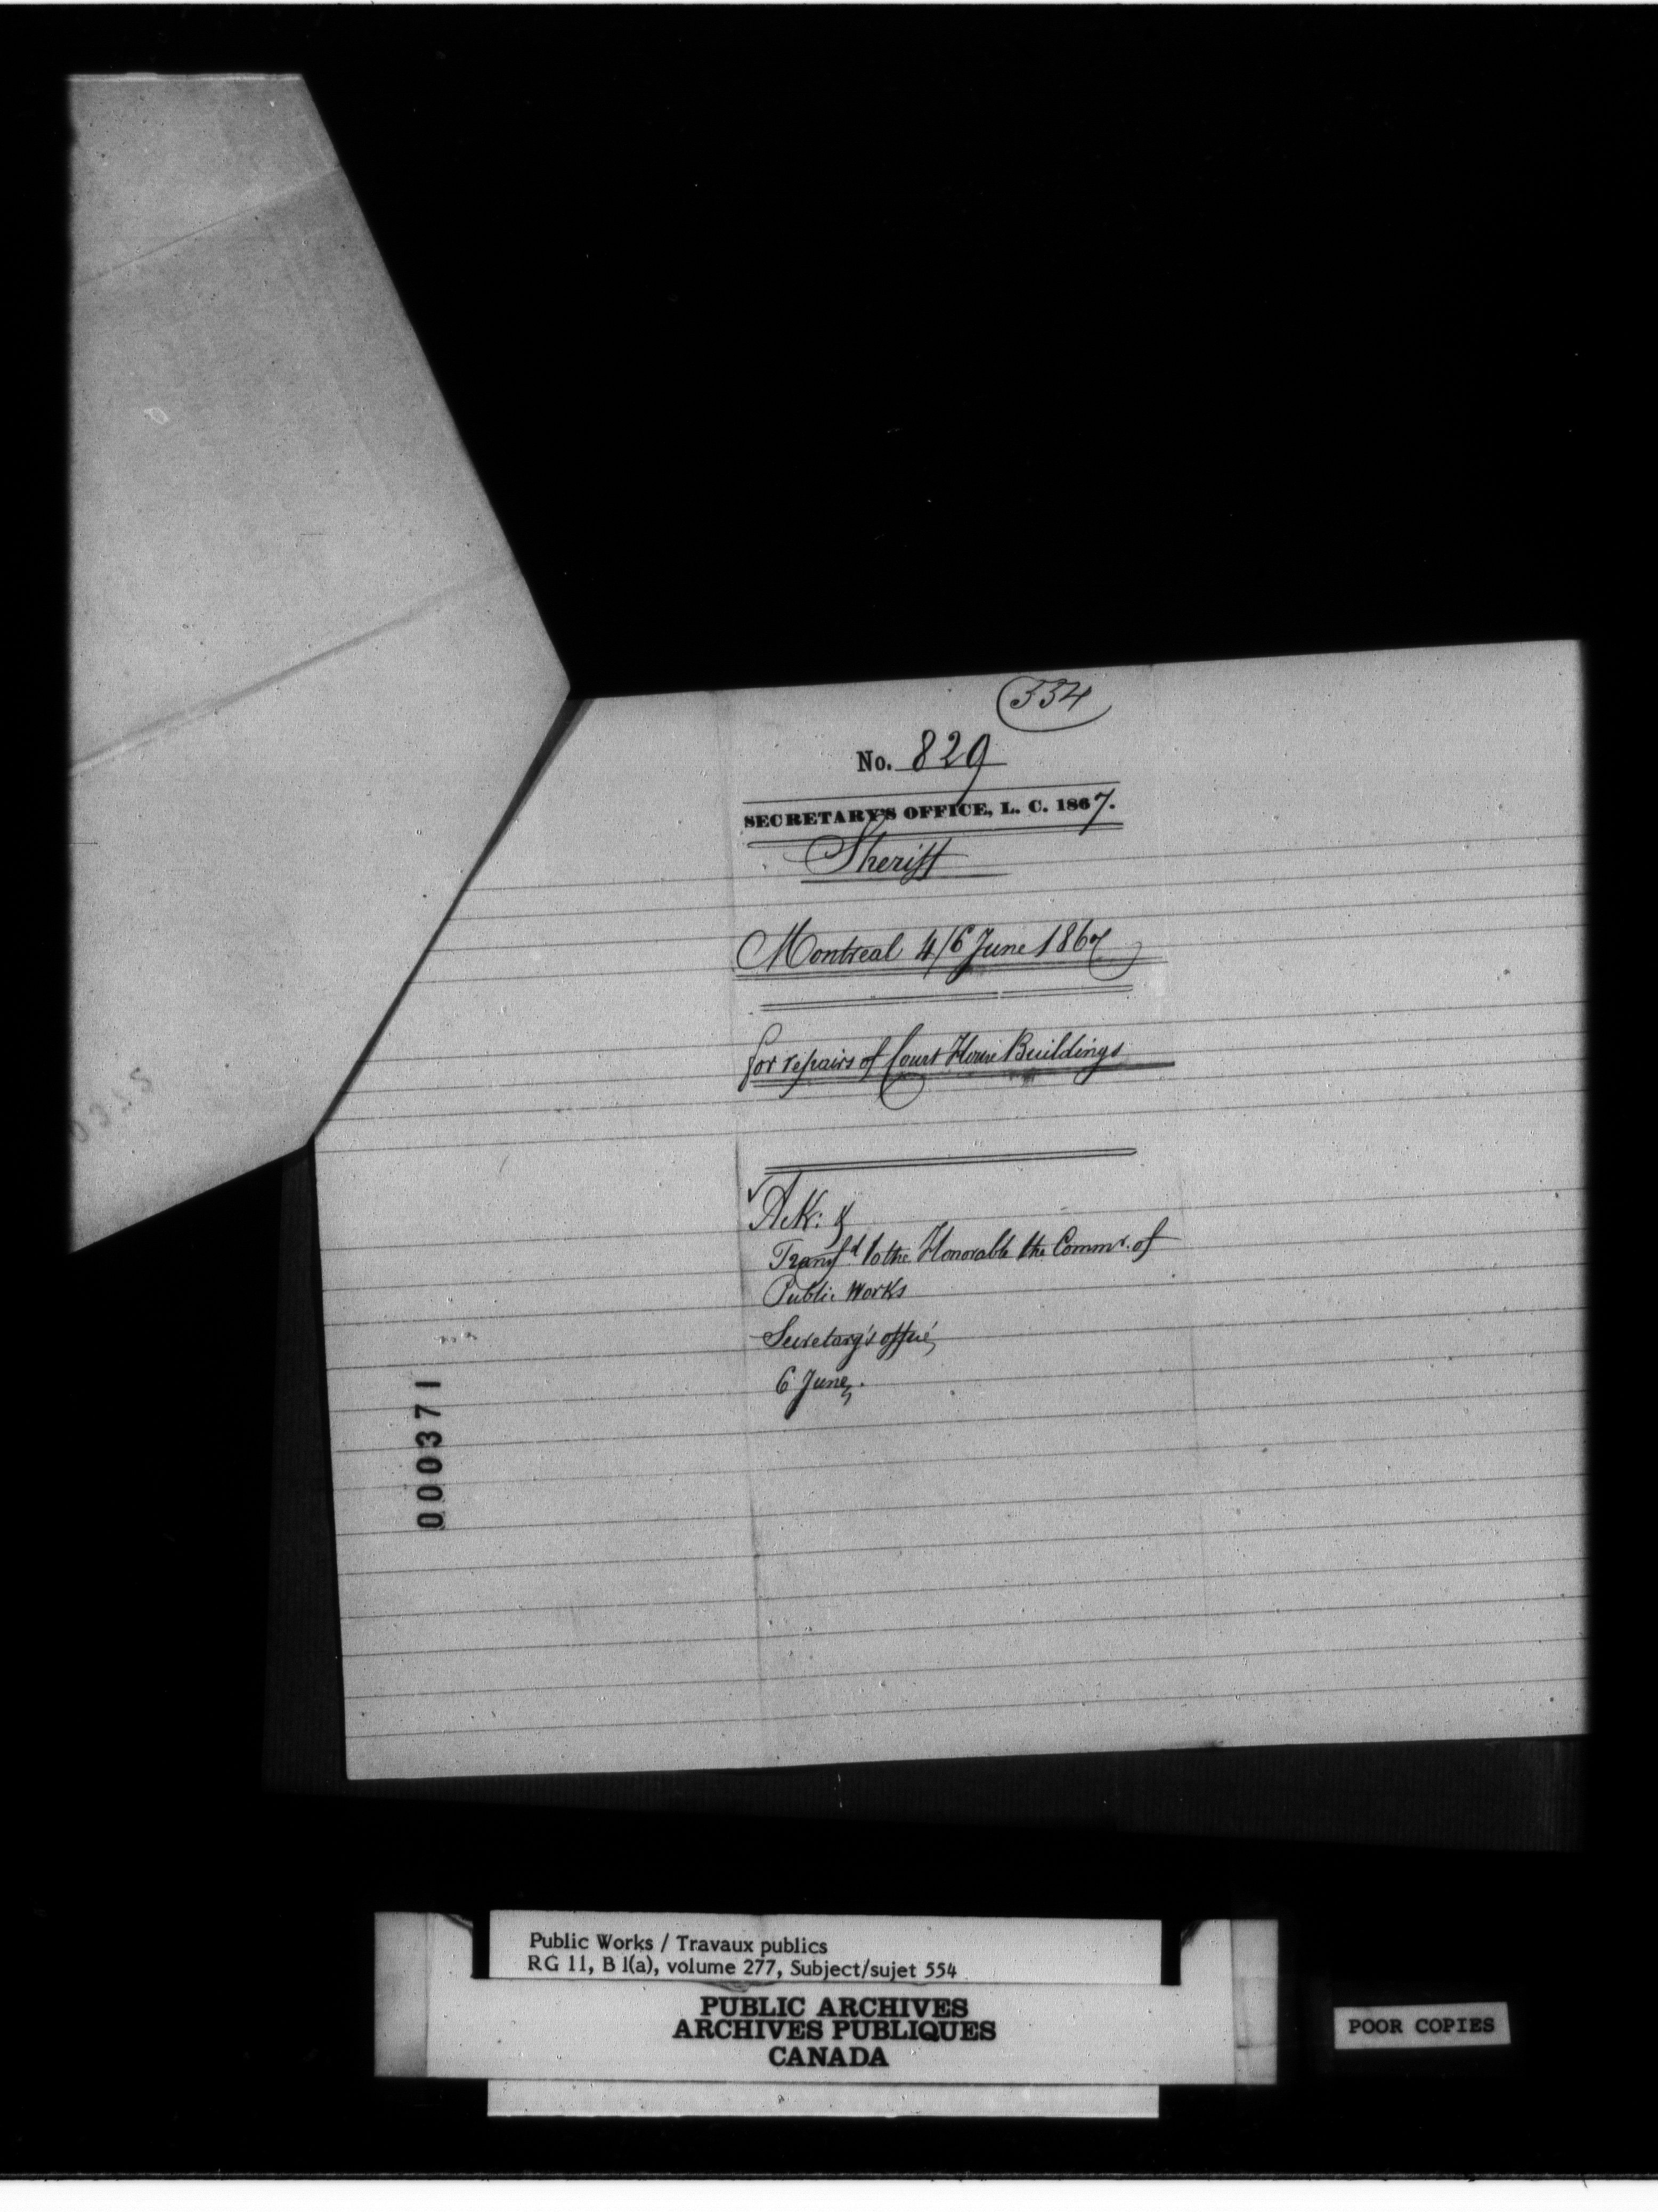 334
No. 829
SECRETARY'S OFFICE, L. C. 1867.
Sheriff
Montreal 4/6 June 1867
for repairs of Court House Buildings
Ack: &
Transfd to the Honorable the Commr. of
Public Works
Secretary's office
6 June.
000371
Public Works / Travaux publics
RG 11, B 1(a), volume 277, Subject/sujet 554
PUBLIC ARCHIVES
ARCHIVES PUBLIQUES
CANADA
POOR COPIES